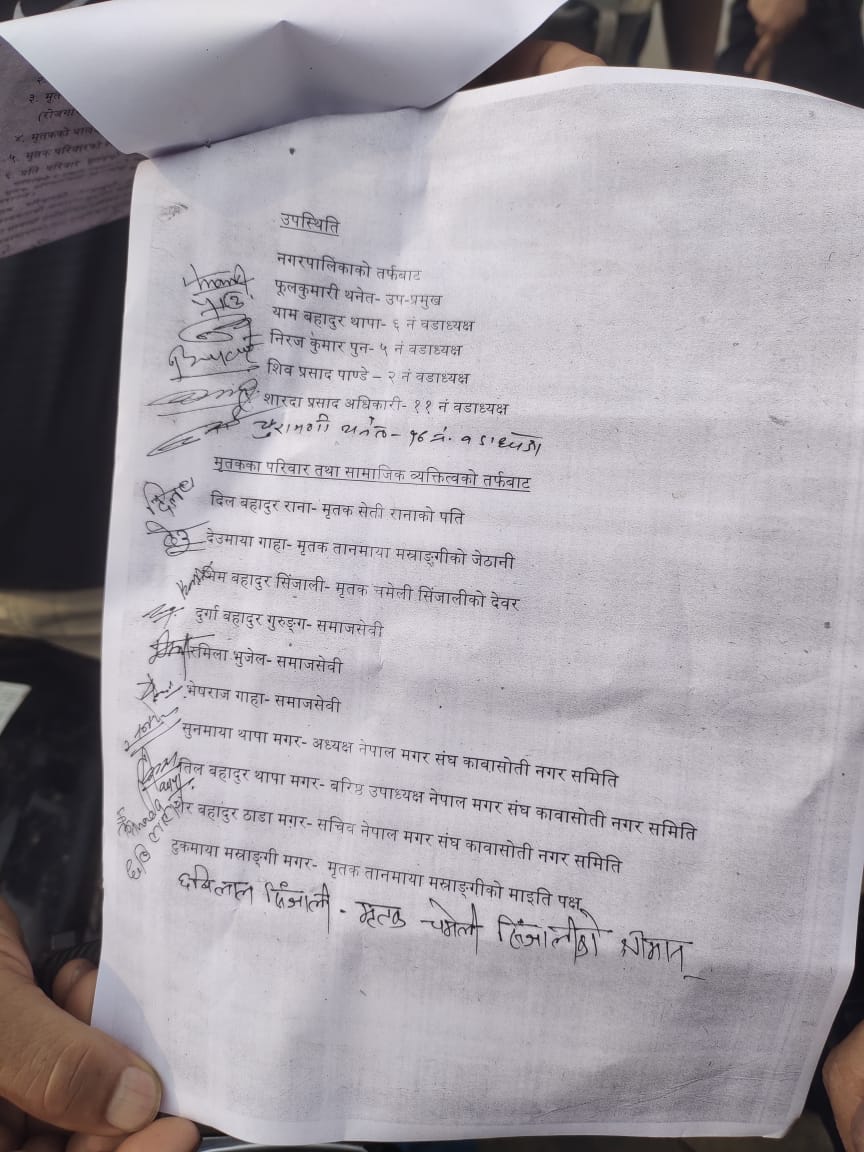 ३. मृत
४. मृतकको
५. मृतक परिवारको
उपस्थिति
नगरपालिकाको तर्फबाट
फूलकुमारी थनेत- उप-प्रमुख
याम बहादुर थापा- ६ नं वडाध्यक्ष
निरज कुमार पुन- ५ नं वडाध्यक्ष
शिव प्रसाद पाण्डे – २ नं वडाध्यक्ष
शारदा प्रसाद अधिकारी- ११ नं वडाध्यक्ष
चुरामणी थनेत- १६ नं. वडाध्यक्ष
मृतकका परिवार तथा सामाजिक व्यक्तित्वको तर्फबाट
दिल बहादुर राना- मृतक सेती रानाको पति
देउमाया गाहा- मृतक तानमाया मस्राङ्गीको जेठानी
भिम बहादुर सिंजाली- मृतक चमेली सिंजालीको देवर
दुर्गा बहादुर गुरुङ्ग- समाजसेवी
रमिला भुजेल- समाजसेवी
भेषराज गाहा- समाजसेवी
सुनमाया थापा मगर- अध्यक्ष नेपाल मगर संघ कावासोती नगर समिति
तिल बहादुर थापा मगर- बरिष्ठ उपाध्यक्ष नेपाल मगर संघ कावासोती नगर समिति
बहादुर ठाडा मगर- सचिव नेपाल मगर संघ कावासोती नगर समिति
टुकमाया मस्राङ्गी मगर- मृतक तानमाया मस्राङ्गीको माइति पक्ष
छविलाल सिंजाली - मृतक चमेली सिंजालीको श्रीमान्